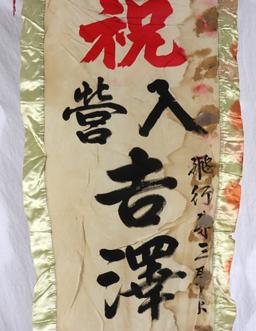 祝
入營
吉澤
飛行第三